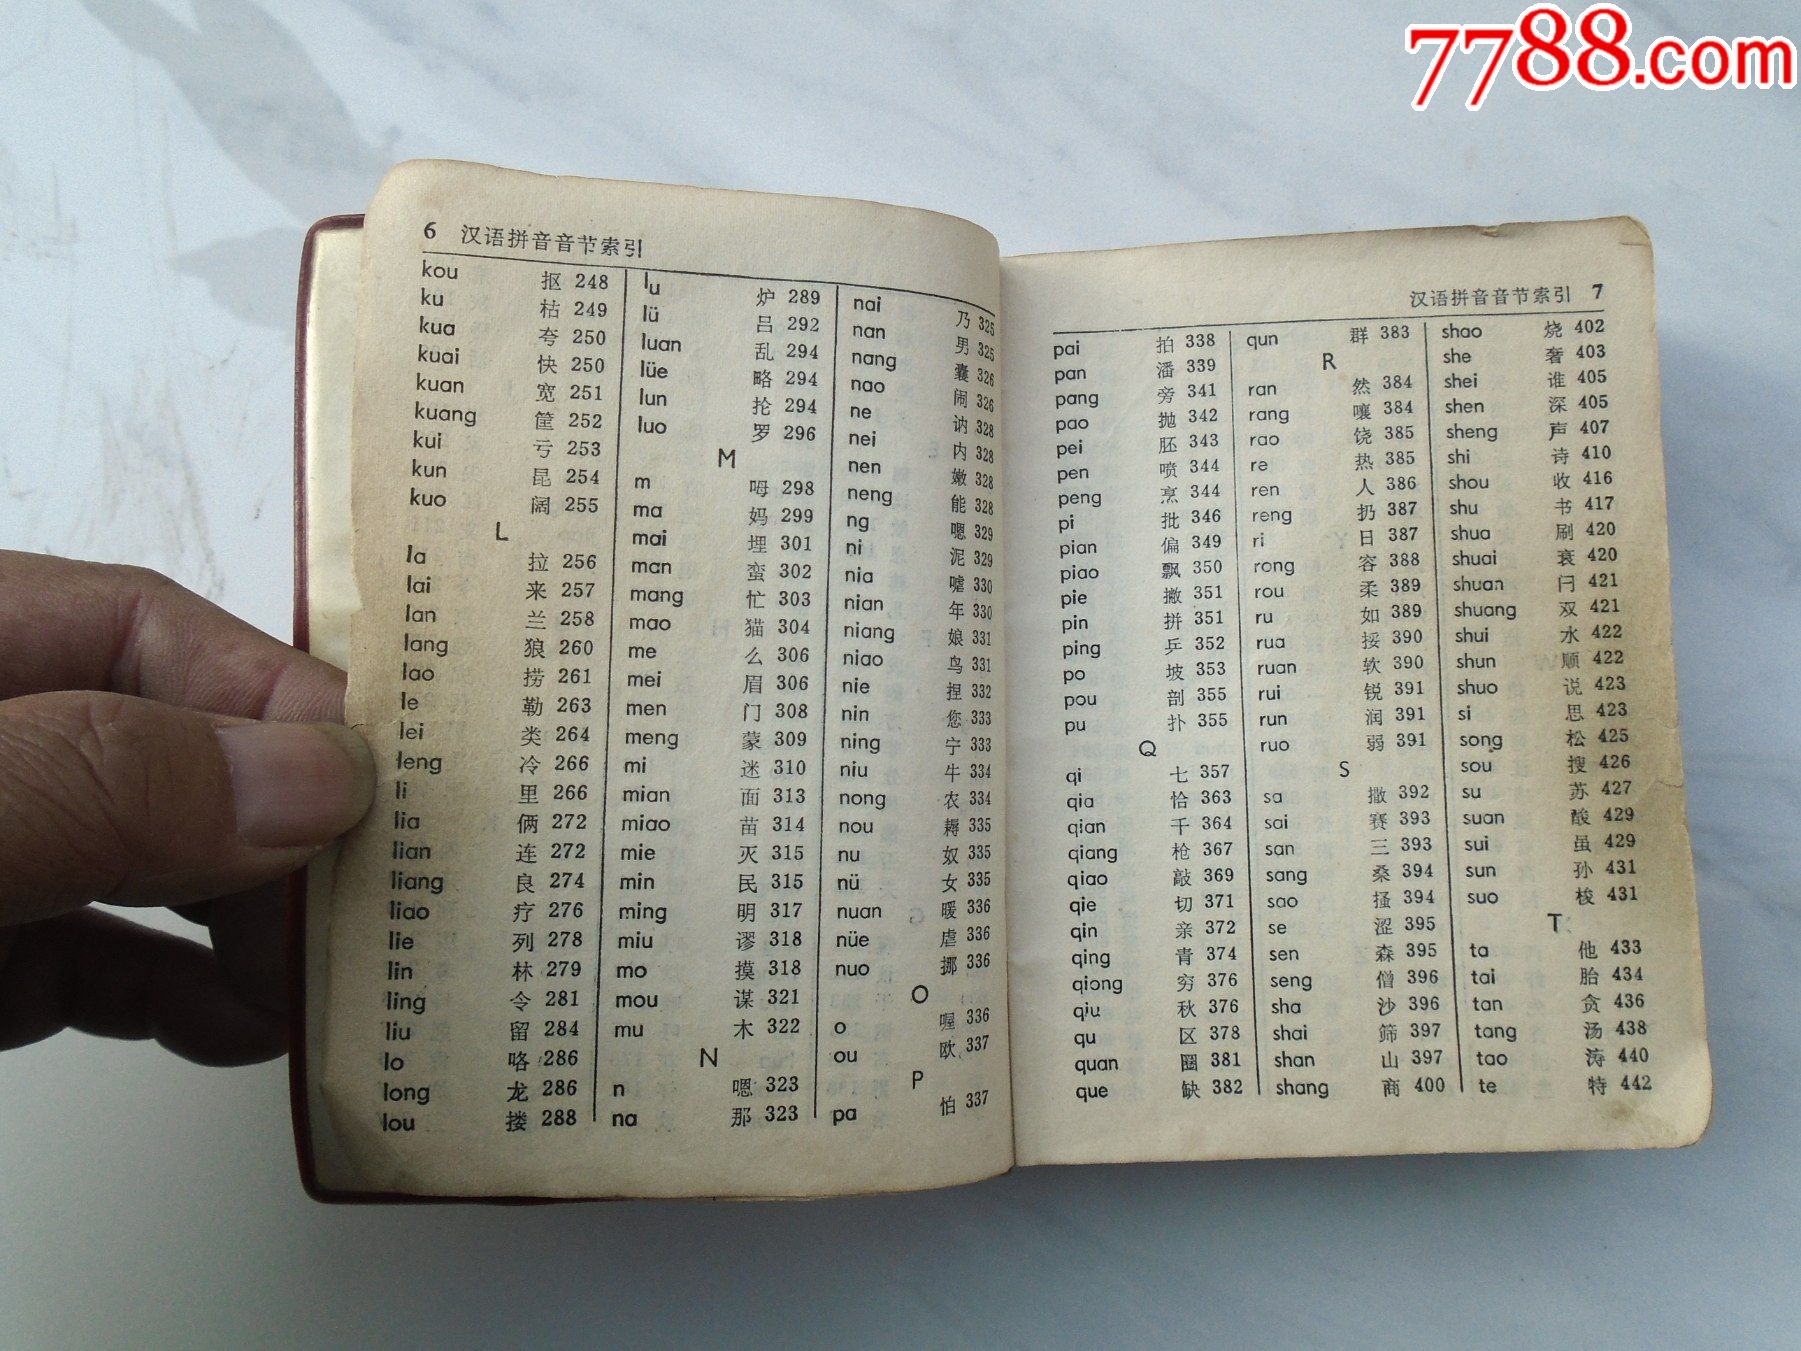 7788.com
6 汉语拼音音节索引
kou 抠 248
ku 枯 249
kua 夸 250
kuai 快 250
kuan 宽 251
kuang 筐 252
kui 亏 253
kun 昆 254
kuo 阔 255
L
la 拉 256
lai 来 257
lan 兰 258
lang 狼 260
lao 捞 261
le 勒 263
lei 类 264
leng 冷 266
li 里 266
lia 俩 272
lian 连 272
liang 良 274
liao 疗 276
lie 列 278
lin 林 279
ling 令 281
liu 留 284
lo 咯 286
long 龙 286
lou 搂 288
lu 炉 289
lü 吕 292
luan 乱 294
lüe 略 294
lun 抡 294
luo 罗 296
M
m 呣 298
ma 妈 299
mai 埋 301
man 蛮 302
mang 忙 303
mao 猫 304
me 么 306
mei 眉 306
men 门 308
meng 蒙 309
mi 迷 310
mian 面 313
miao 苗 314
mie 灭 315
min 民 315
ming 明 317
miu 谬 318
mo 摸 318
mou 谋 321
mu 木 322
N
n 嗯 323
na 那 323
nai 乃 325
nan 男 325
nang 囊 326
nao 闹 326
ne 讷 328
nei 内 328
nen 嫩 328
neng 能 328
ng 嗯 329
ni 泥 329
nia 嘘 330
nian 年 330
niang 娘 331
niao 鸟 331
nie 捏 332
nin 您 333
ning 宁 333
niu 牛 334
nong 农 334
nou 耨 335
nu 奴 335
nü 女 335
nuan 暖 336
nüe 虐 336
nuo 挪 336
O
o 喔 336
ou 欧 337
P
pa 怕 337
汉语拼音音节索引 7
pai 拍 338
pan 潘 339
pang 旁 341
pao 抛 342
pei 胚 343
pen 喷 344
peng 烹 344
pi 批 346
pian 偏 349
piao 飘 350
pie 撇 351
pin 拼 351
ping 乒 352
po 坡 353
pou 剖 355
pu 扑 355
Q
qi 七 357
qia 恰 363
qian 千 364
qiang 枪 367
qiao 敲 369
qie 切 371
qin 亲 372
qing 青 374
qiong 穷 376
qiu 秋 376
qu 区 378
quan 圈 381
que 缺 382
qun 群 383
R
ran 然 384
rang 嚷 384
rao 饶 385
re 热 385
ren 人 386
reng 扔 387
ri 日 387
rong 容 388
rou 柔 389
ru 如 389
rua 挼 390
ruan 软 390
rui 锐 391
run 润 391
ruo 弱 391
S
sa 撒 392
sai 赛 393
san 三 393
sang 桑 394
sao 搔 394
se 涩 395
sen 森 395
seng 僧 396
sha 沙 396
shai 筛 397
shan 山 397
shang 商 400
shao 烧 402
she 奢 403
shei 谁 405
shen 深 405
sheng 声 407
shi 诗 410
shou 收 416
shu 书 417
shua 刷 420
shuai 衰 420
shuan 闩 421
shuang 双 421
shui 水 422
shun 顺 422
shuo 说 423
si 思 423
song 松 425
sou 搜 426
su 苏 427
suan 酸 429
sui 虽 429
sun 孙 431
suo 梭 431
T
ta 他 433
tai 胎 434
tan 贪 436
tang 汤 438
tao 涛 440
te 特 442